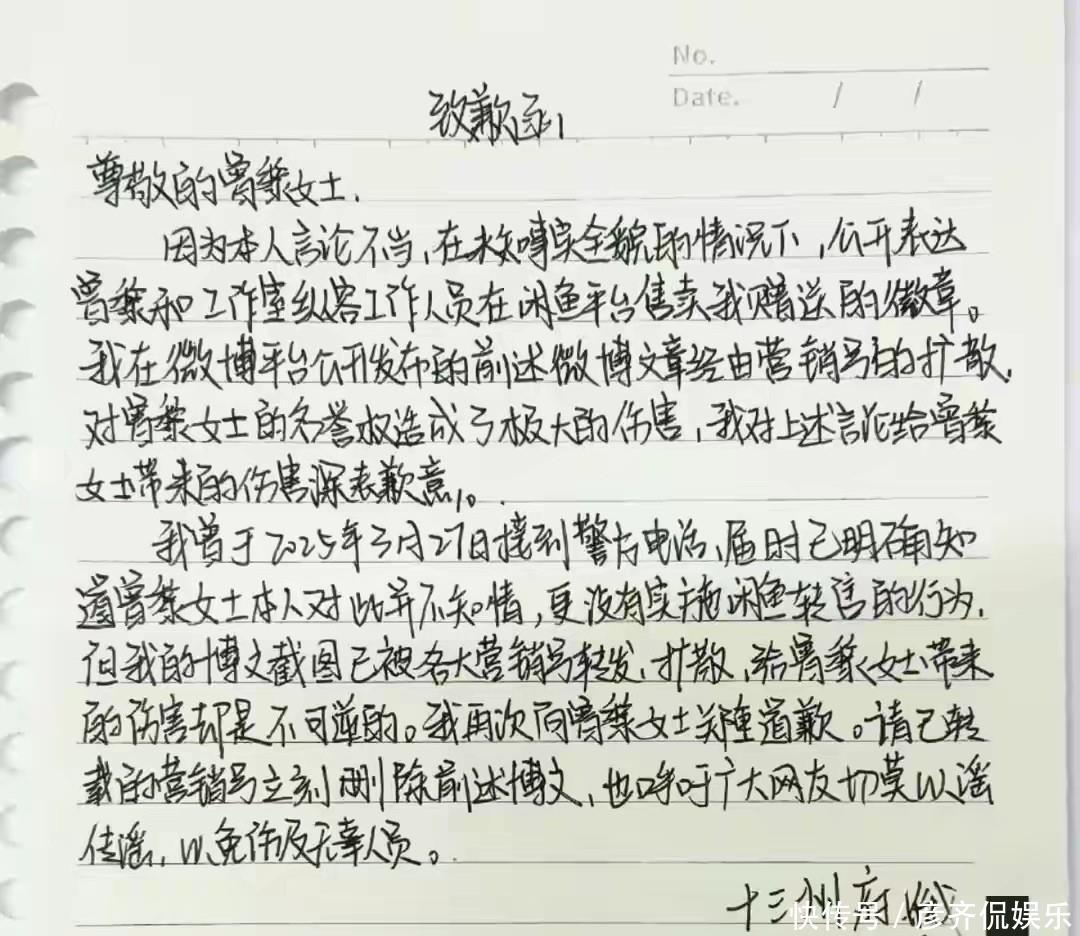 No.
Date. / /
致歉函
尊敬的曾黎女士.
因为本人言论不当,在未知事实全貌的情况下,公开表达
曾黎和工作室纵容工作人员在闲鱼平台售卖我赠送的徽章。
我在微博平台公开发布的前述微博文章经由营销号的扩散,
对曾黎女士的名誉权造成了极大的伤害,我对上述言论给曾黎
女士带来的伤害深表歉意。
我曾于2025年3月27日接到警方电话,届时已明确知
道曾黎女士本人对此并不知情,更没有实施闲鱼转售的行为,
但我的博文截图已被各大营销号转发,扩散,给曾黎女士带来
的伤害却是不可逆的。我再次向曾黎女士郑重道歉。请已转
载的营销号立刻删除前述博文,也呼吁广大网友切莫以谣
传谣,以免伤及无辜人员。
十三州府
快传号/彦齐侃娱乐